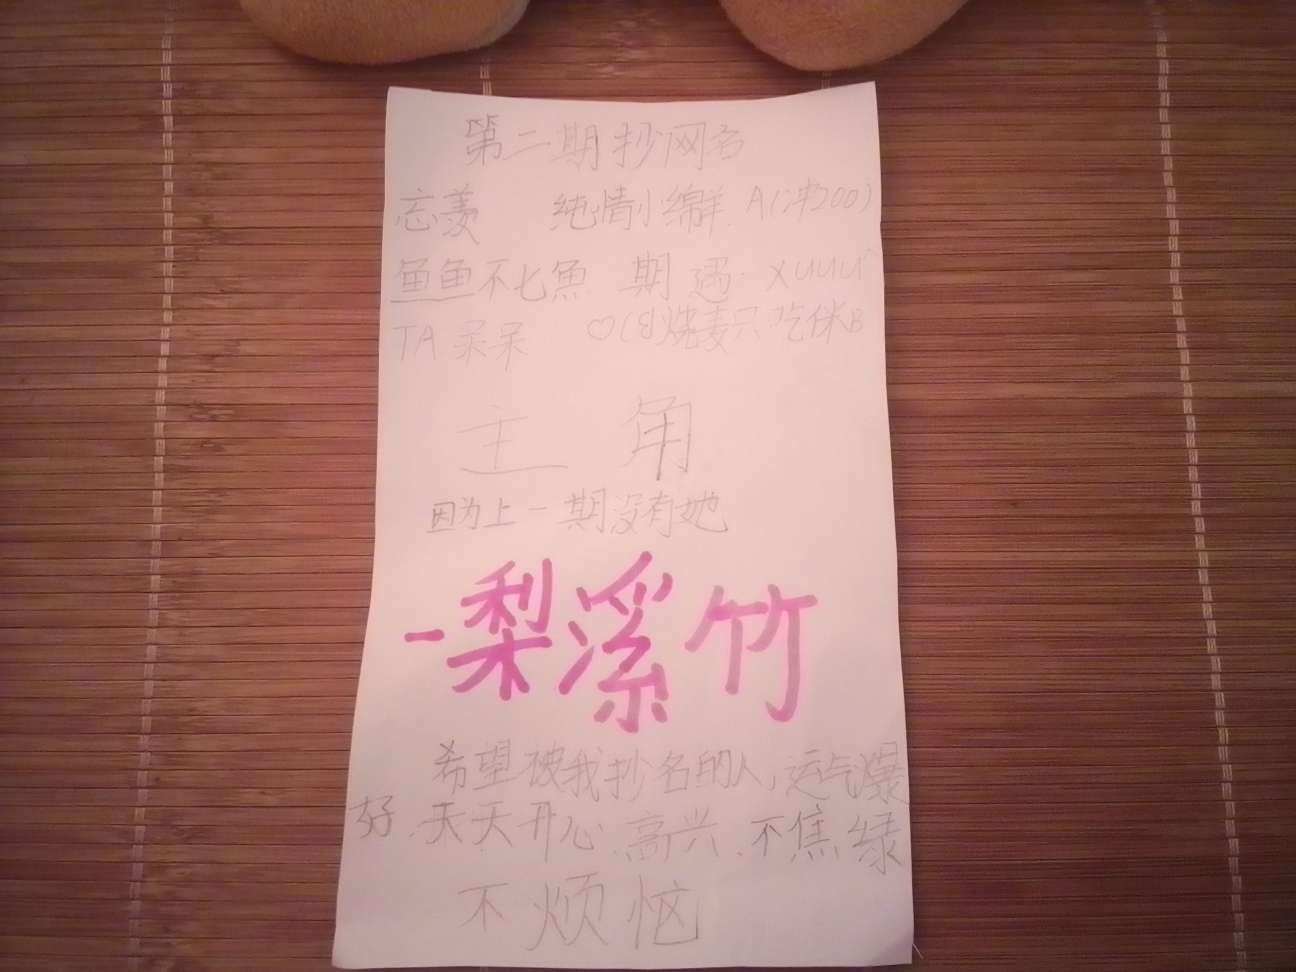 第二期抄网名
忘羡 纯情小绵羊 A(冲200)
鱼鱼不七魚 期遇 XUUU
TA 呆呆 ♡(8)烧麦只吃侎B
主角
因为上一期没有她
-梨溪竹
希望被我抄名的人,运气爆
好.天天开心.高兴.不焦绿
不烦恼